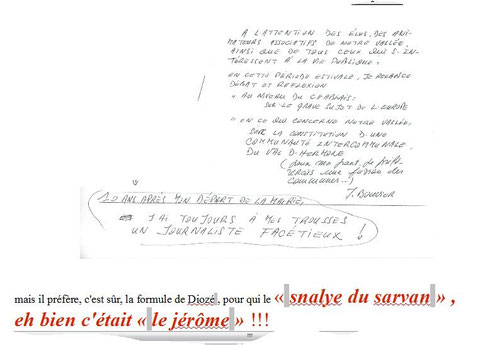 A L'ATTENTION DES ÉLUS, DES ANI-
MATEURS ASSOCIATIFS DE NOTRE VALLÉE,
AINSI QUE DE TOUS CEUX QUI S'IN-
TÉRESSENT À LA VIE PUBLIQUE.
EN CETTE PÉRIODE ESTIVALE, JE RELANCE
DÉBAT ET REFLEXION
" AU NIVEAU DU CHABLAIS:
SUR LE GRAVE SUJET DE L'EUROPE
" EN CE QUI CONCERNE NOTRE VALLÉE,
SUR LA CONSTITUTION D'UNE
COMMUNAUTÉ INTERCOMMUNALE
DU VAL D'HERMONE
(pour ma part, je préfé-
rerais une fusion des
communes...)
J.
10 ANS APRÈS MON DÉPART DE LA MAIRIE,
J'AI TOUJOURS À MES TROUSSES
UN JOURNALISTE FACÉTIEUX !
mais il préfère, c'est sûr, la formule de Diozé , pour qui le « snalye du sarvan » ,
eh bien c'était « le jérôme » !!!